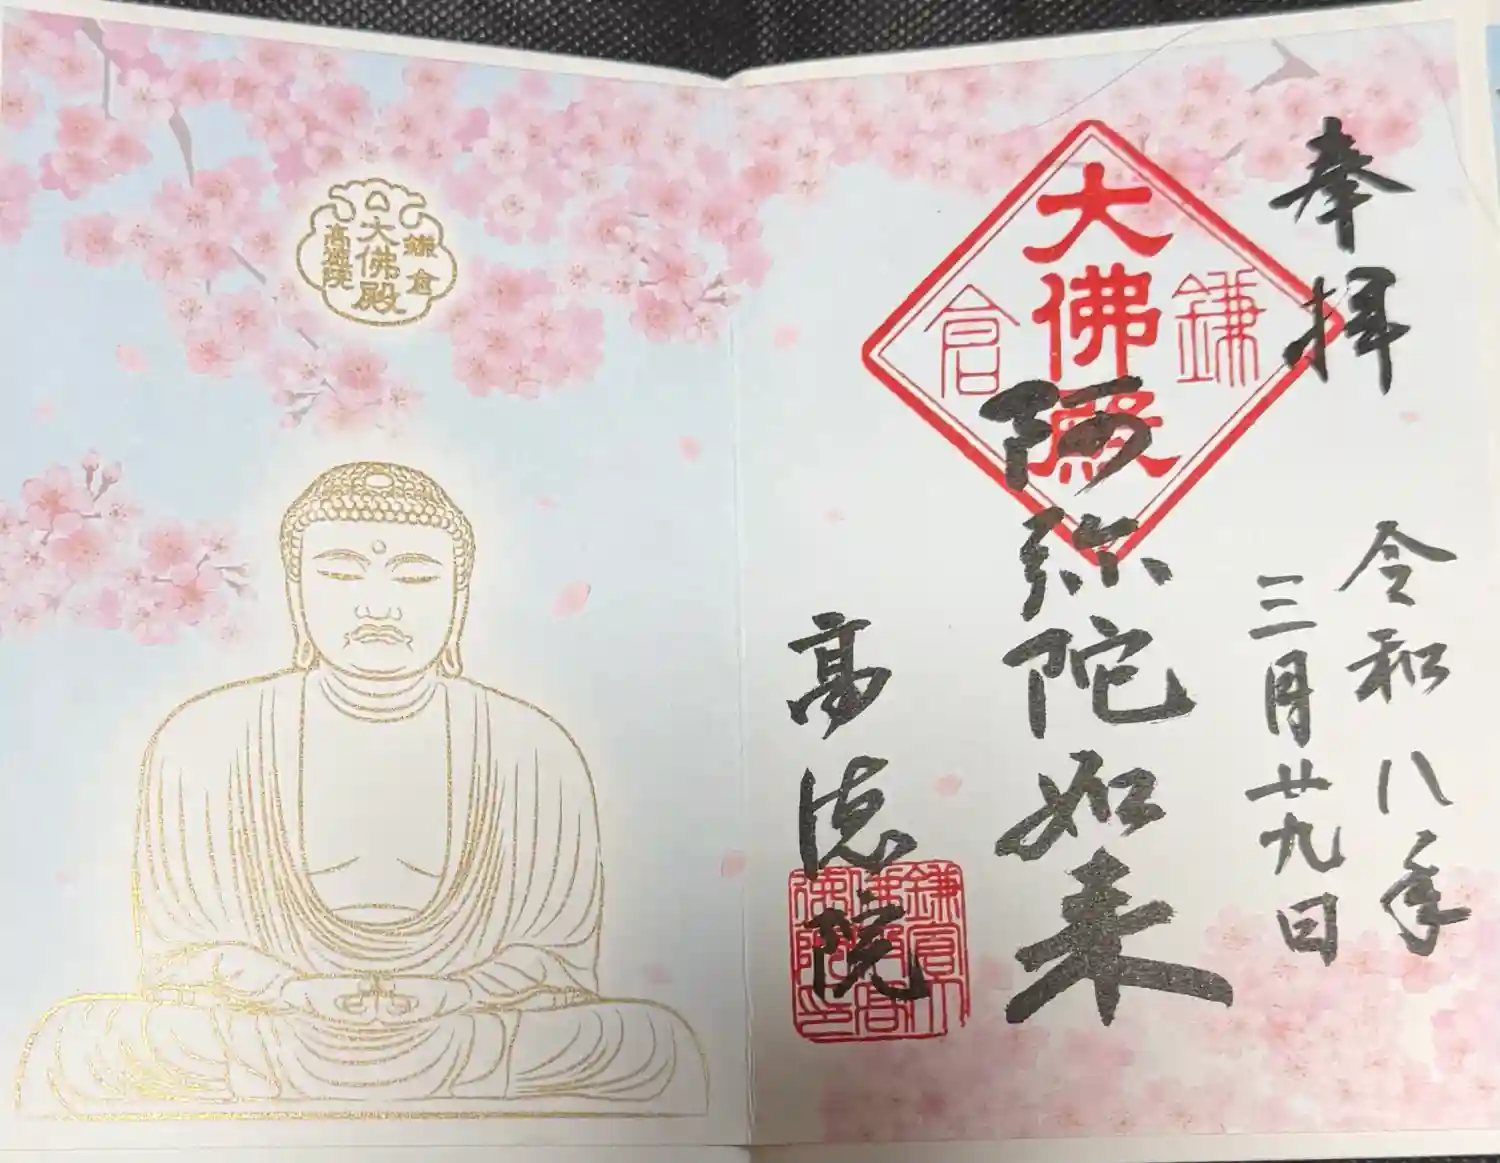 奉拝
令和八年
三月廿九日
大佛殿
鎌倉
阿弥陀如来
高徳院
鎌倉
大佛殿
高徳院